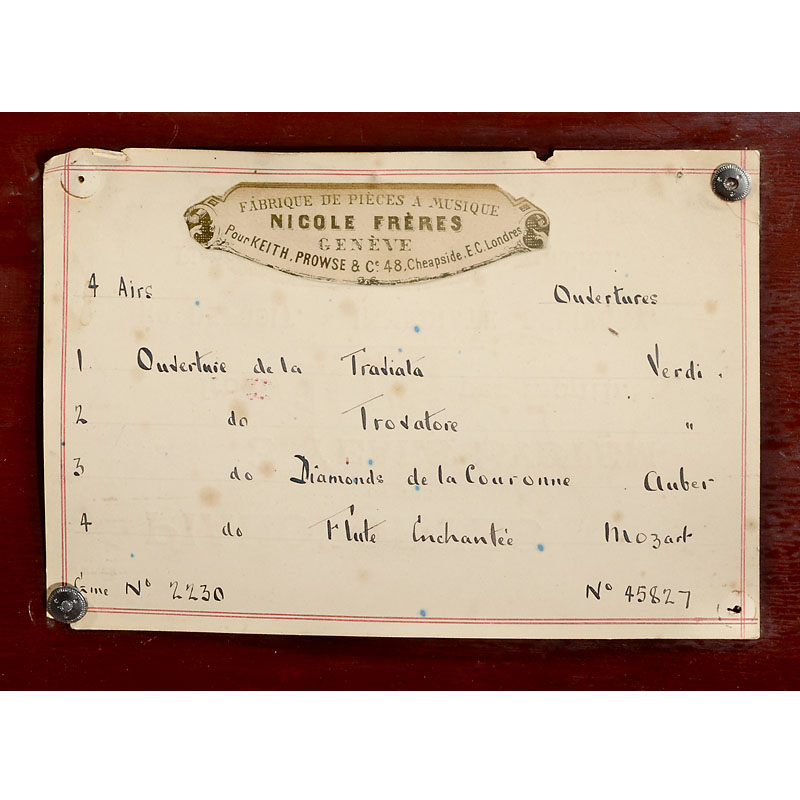 FABRIQUE DE PIÈCES A MUSIQUE
NICOLE FRÈRES
GENÈVE
Pour KEITH, PROWSE & Co 48, Cheapside, E.C. Londres
4 Airs Ouvertures
1. Ouverture de la Traviata Verdi.
2 do Trovatore "
3 do Diamonds de la Couronne Auber
4 do Flute Enchantée Mozart
Game No 2230 No 45827